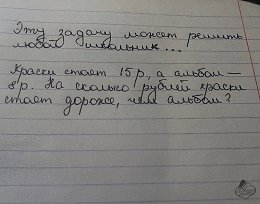 Эту задачу может решить
любой школьник...
Краски стоят 15р, а альбом —
8р. На сколько рублей краски
стоят дороже, чем альбом?